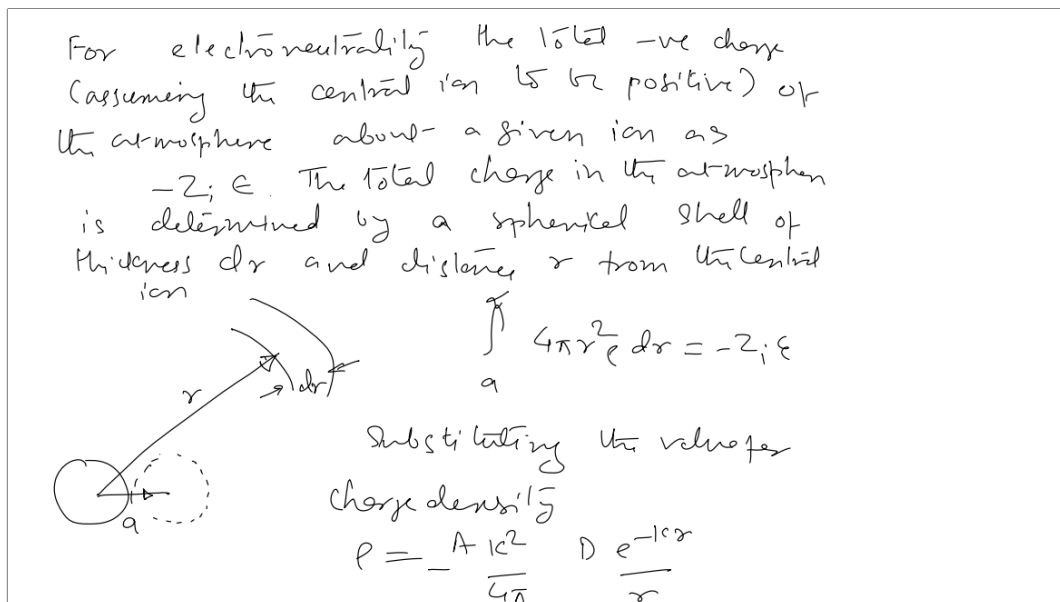 For electroneutrality the total -ve charge
(assuming the central ion to be positive) of
the atmosphere about a given ion as
-Z_i ε. The total charge in the atmosphere
is determined by a spherical shell of
thickness dr and distance r from the central
ion
∫_a 4πr²ρ dr = -Z_i ε
r
dr
a
Substituting the value for
charge density
ρ = -A κ²/4π D e^{-κr}/r